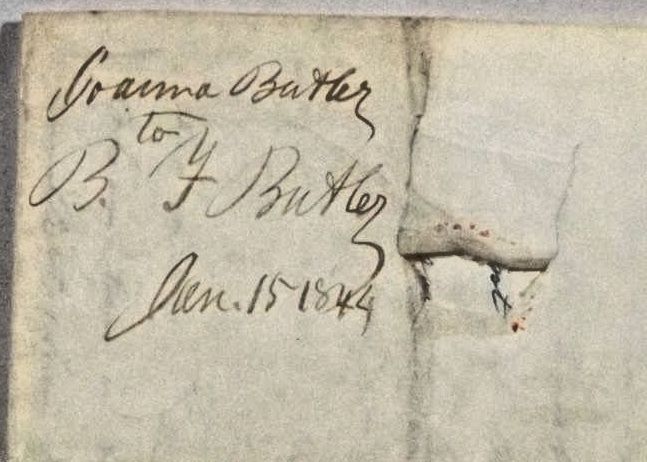 Joanna Butler
to
B. F Butler
Jan. 15 1844